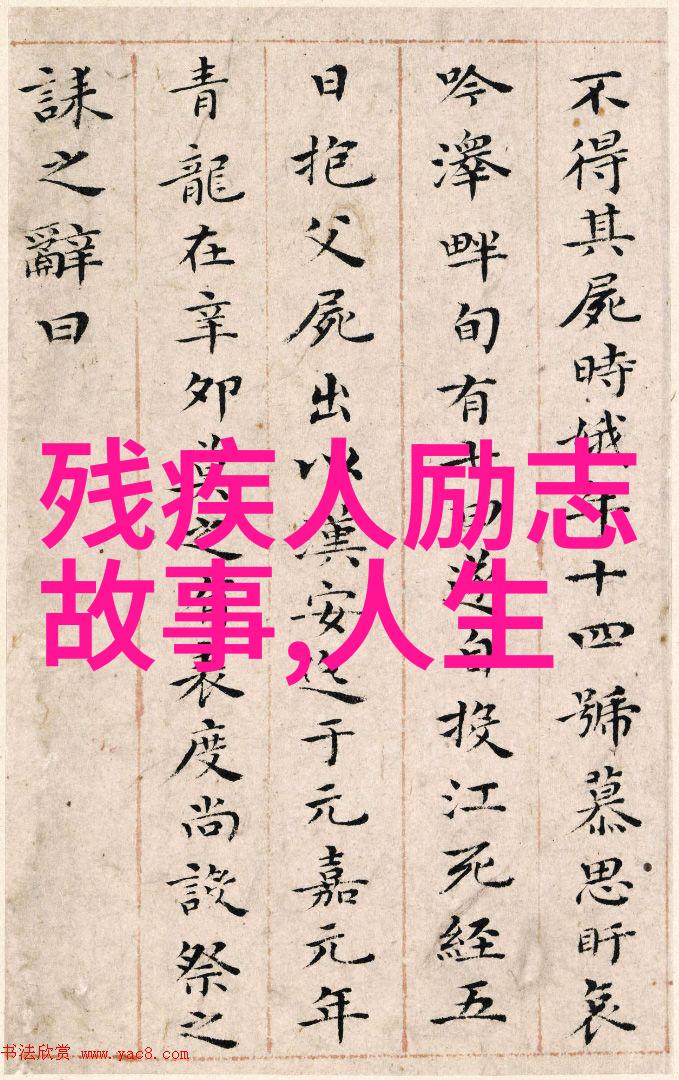 不得其屍時娥年十四號慕思盱哀
吟澤畔旬有七日遂自投江死經五
日抱父屍出以漢安迄于元嘉元年
青龍在辛卯莫之有表度尚設祭之
誄之辭曰
残疾人励志
故事,人生
书法欣赏 www.yac8.com